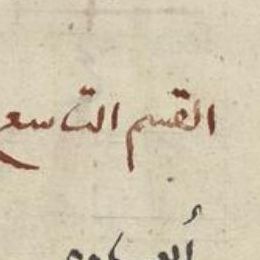 القسم التاسع